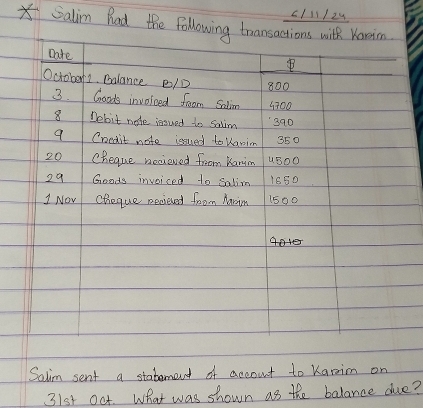 6/11/24
* Salim had the following transactions with Karim.
Date $
October 1. Balance B/D 800
3. Goods invoiced from Salim 4700
8 Debit note issued to Salim 390
9 Credit note issued to Karim 350
20 Cheque recieved from Karim 4500
29 Goods invoiced to Salim 1650
1 Nov Cheque recieved from Karim 1500
Salim sent a statement of account to Karim on
31st Oct. What was shown as the balance due?